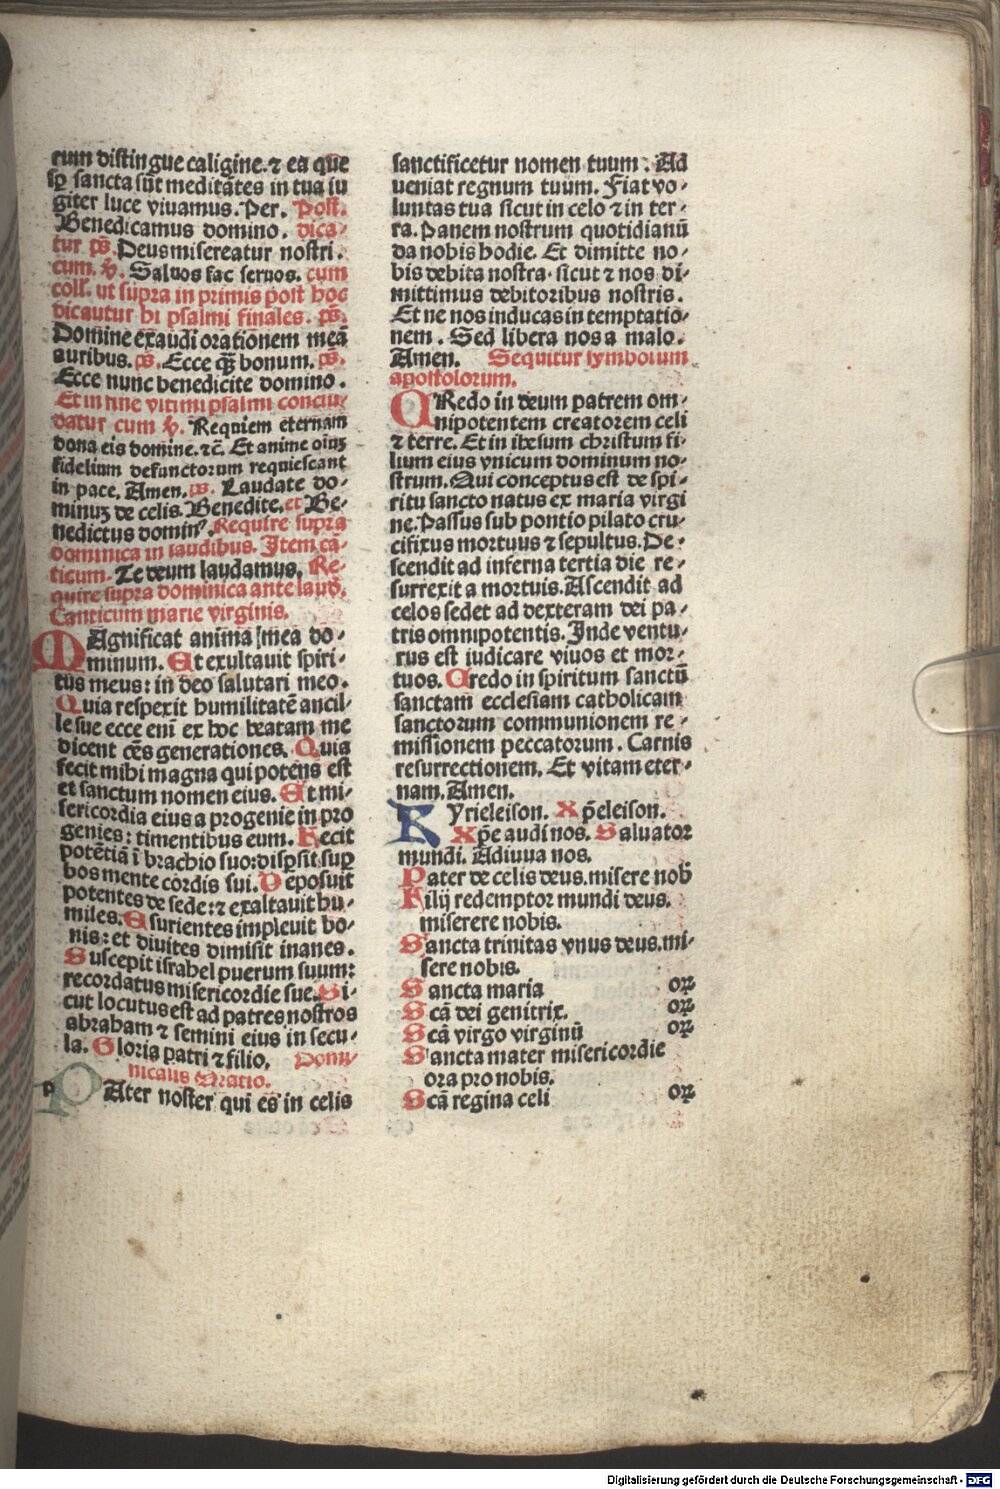 rum distingue caligine. ⁊ ea que
sꝑ sancta sūt meditātes in tua iu
giter luce viuamus. Per. Post.
Benedicamus domino. dica⸗
tur pͥs. Deus misereatur nostri.
cum. ꝟ. Saluos fac seruos. cum
coll. ut supra in primis post hoc
dicautur hi psalmi finales. ps.
Domine exaudi orationem meā
auribus. ps. Ecce q̄ꝫ bonum. ps.
Ecce nunc benedicite domino.
Et in fine vltimi psalmi conclu⸗
datur cum ꝟ. Requiem eternam
dona eis domine. ⁊c̄. Et anime oīuꝫ
fidelium defunctorum requiescant
in pace. Amen. ps. Laudate do⸗
minuꝫ de celis. Benedite. et Be⸗
nedictus dominꝰ. Require supra
dominica in laudibus. Item cā⸗
ticum. Te deum laudamus. Re⸗
quire supra dominica ante laud.
Canticum marie virginis.
MAgnificat anima mea do⸗
minum. Et exultauit spiri⸗
tus meus: in deo salutari meo.
Quia respexit humilitatē ancil⸗
le sue ecce enī ex hoc beatam me
dicent oēs generationes. Quia
fecit mihi magna qui potens est
et sanctum nomen eius. Et mi⸗
sericordia eius a progenie in pro
genies: timentibus eum. Fecit
potētiā ī brachio suo: disꝑsit suꝑ
bos mente cordis sui. Deposuit
potentes de sede: ⁊ exaltauit hu⸗
miles. Esurientes impleuit bo⸗
nis: et diuites dimisit inanes.
Suscepit israhel puerum suum:
recordatus misericordie sue. Si⸗
cut locutus est ad patres nostros
abraham ⁊ semini eius in secu⸗
la. Gloria patri ⁊ filio. Domi⸗
nicalis Oratio.
p PAter noster qui es in celis
sanctificetur nomen tuum. Ad
ueniat regnum tuum. Fiat vo⸗
luntas tua sicut in celo ⁊ in ter⸗
ra. Panem nostrum quotidianū
da nobis hodie. Et dimitte no⸗
bis debita nostra. sicut ⁊ nos di⸗
mittimus debitoribus nostris.
Et ne nos inducas in temptatio⸗
nem. Sed libera nos a malo.
Amen. Sequitur symbolum
apostolorum.
CRedo in deum patrem om⸗
nipotentem creatorem celi
⁊ terre. Et in ihesum christum fi⸗
lium eius vnicum dominum no⸗
strum. Qui conceptus est de spi⸗
ritu sancto natus ex maria virgi
ne. Passus sub pontio pilato cru⸗
cifixus mortuus ⁊ sepultus. De⸗
scendit ad inferna tertia die re⸗
surrexit a mortuis. Ascendit ad
celos sedet ad dexteram dei pa⸗
tris omnipotentis. Inde ventu⸗
rus est iudicare viuos et mor⸗
tuos. Credo in spiritum sanctū
sanctam ecclesiam catholicam
sanctorum communionem re⸗
missionem peccatorum. Carnis
resurrectionem. Et vitam eter⸗
nam. Amen.
KYrieleison. Xp̄eleison.
Xp̄e audi nos. Saluator
mundi. Adiuua nos.
Pater de celis deus. misere nob̄
Filij redemptor mundi deus.
miserere nobis.
Sancta trinitas vnus deus. mi⸗
sere nobis.
Sancta maria orꝫ
Scā dei genitrix. orꝫ
Scā virgo virginū orꝫ
Sancta mater misericordie
ora pro nobis.
Scā regina celi orꝫ
Digitalisierung gefördert durch die Deutsche Forschungsgemeinschaft - DFG